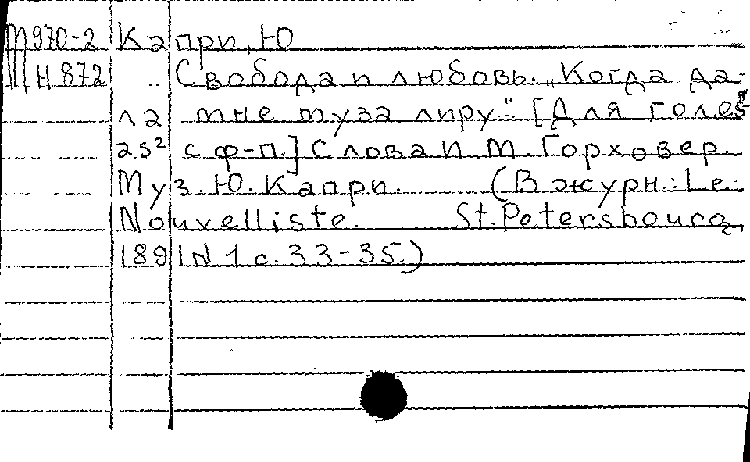 М970-2 Капри, Ю
Н872 .. Свобода и любовь. „Когда да-
ла мне муза лиру." [Для голоса
с ф-п.] Слова И М. Горховер.
Муз. Ю. Капри. (В журн.: Le
Nouvelliste. St. Petersbourg
1891 N 1 с. 33-35.)